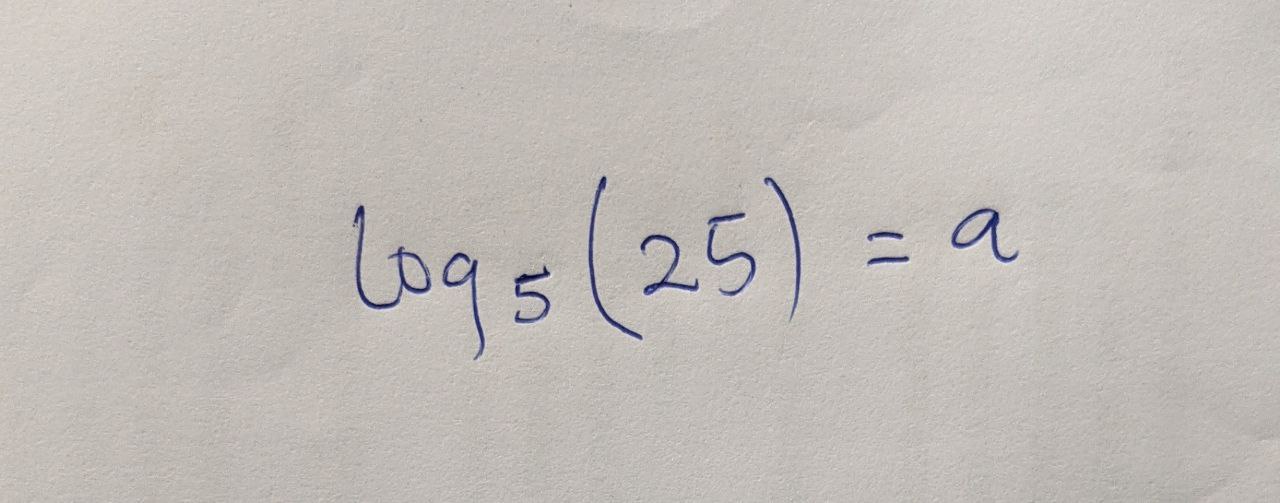 log₅(25) = a